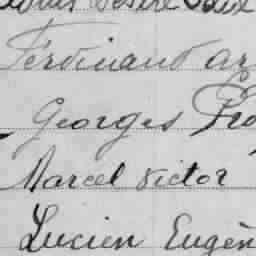 Désiré
Ferdinand
Georges
Marcel Victor
Lucien Eugèn